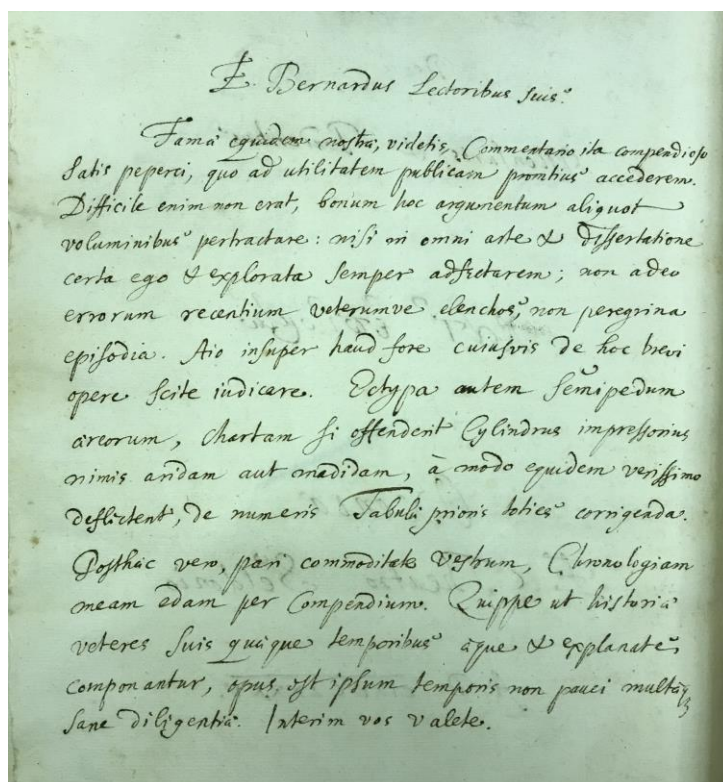 E. Bernardus Lectoribus suis.
Famâ equidem nostrâ, videtis, Commentario ita compendioso
satis peperci, quo ad utilitatem publicam promtius accederem.
Difficile enim non erat, bonum hoc argumentum aliquot
voluminibus pertractare: nisi in omni arte & dissertatione
certa ego & explorata semper adfectarem; non adeo
errorum recentium veterumve elenchos, non peregrina
episodia. Aio insuper haud fore cuiusvis de hoc brevi
opere scite iudicare. Ectypa autem semipedum
æreorum, chartam si offenderit Cylindrus impressorius
nimis aridam aut madidam, à modo equidem verissimo
deflectent, de numeris Tabulæ prioris toties corrigenda.
Posthac vero, pari commoditate vestrum, Chronologiam
meam edam per Compendium. Quippe ut historiæ
veteres suis quæque temporibus æque & explanate
componantur, opus est ipsum temporis non pauci multaq;
sane diligentiâ. Interim vos valete.